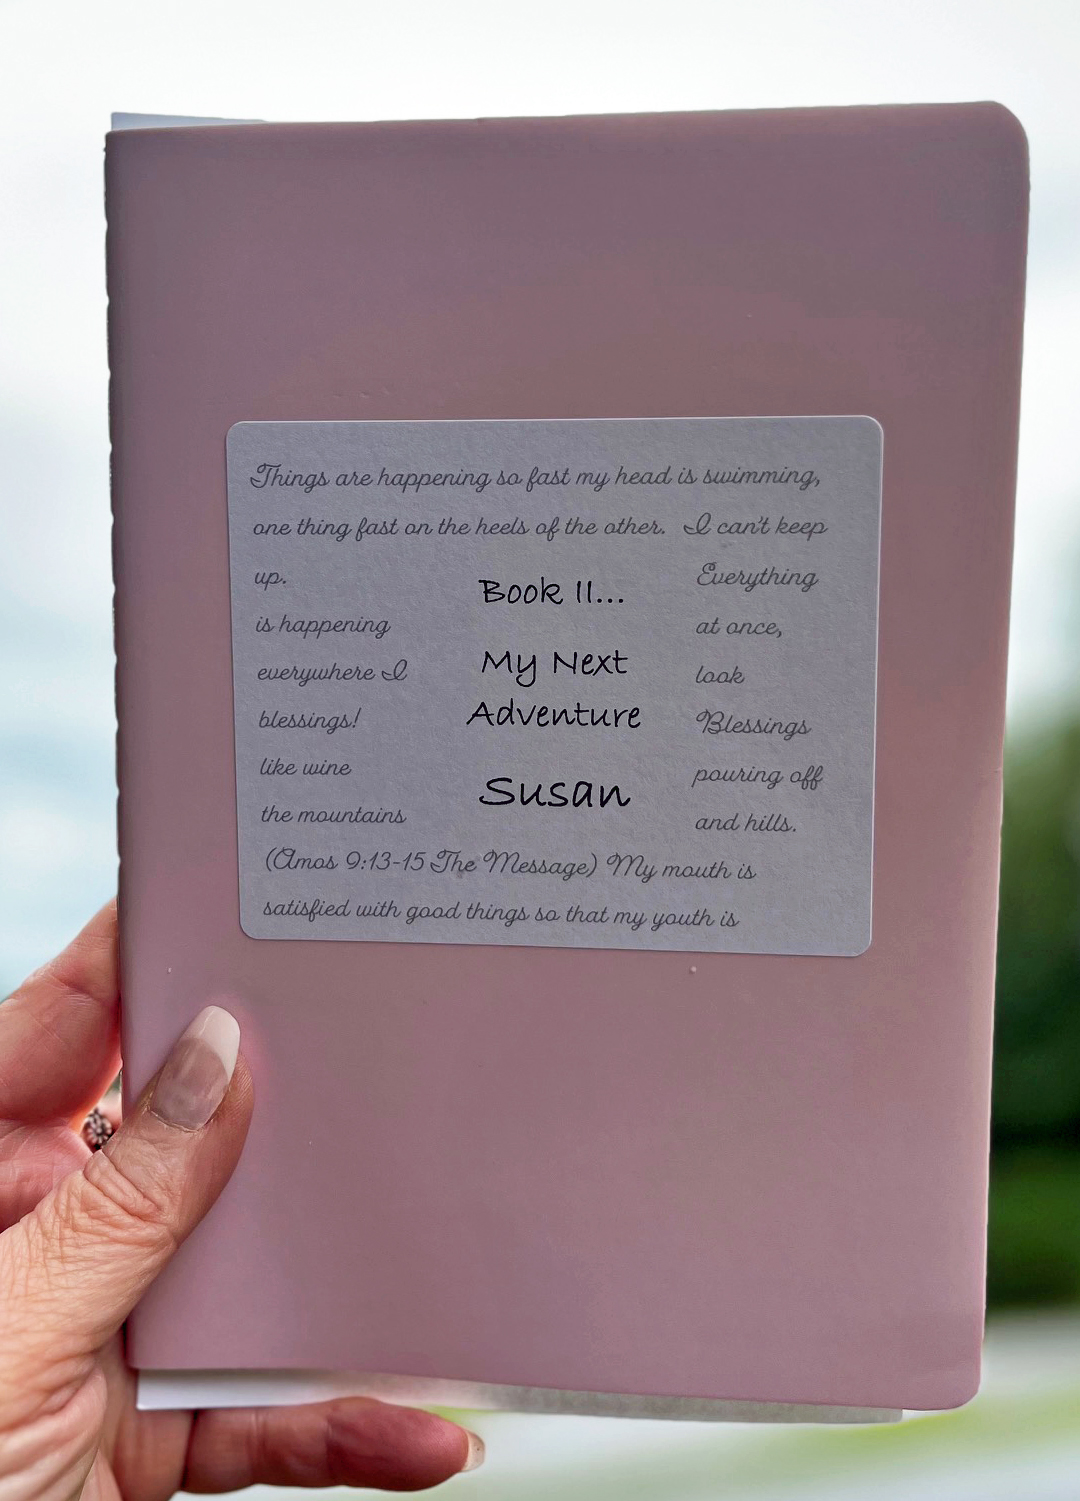 Things are happening so fast my head is swimming,
one thing fast on the heels of the other. I can't keep
up. Everything
is happening at once,
everywhere I look
blessings! Blessings
like wine pouring off
the mountains and hills.
(Amos 9:13-15 The Message) My mouth is
satisfied with good things so that my youth is
Book II...
My Next
Adventure
Susan